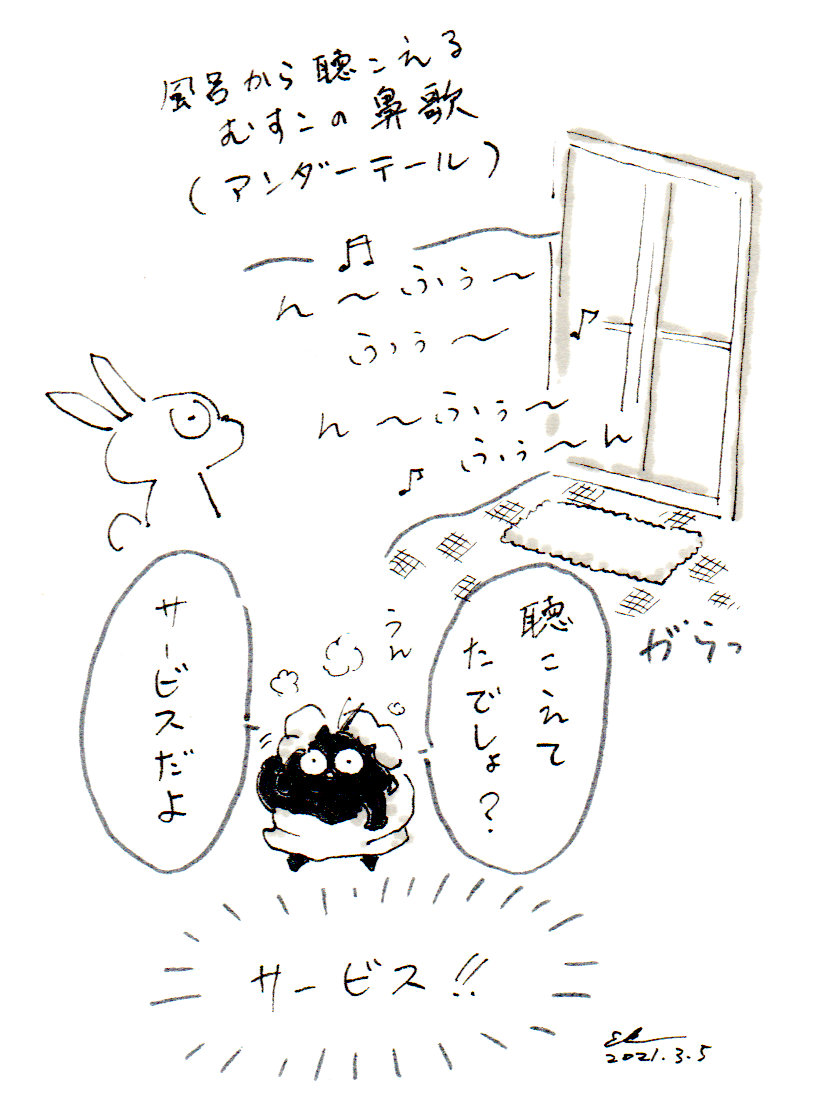 風呂から聴こえる
むすこの鼻歌
(アンダーテール)
ん〜ふぅ〜
ふぅ〜
ん〜ふぅ〜
ふぅ〜ん
がらっ
聴こえて
たでしょ?
うん
サービスだよ
サービス!!
2021.3.5